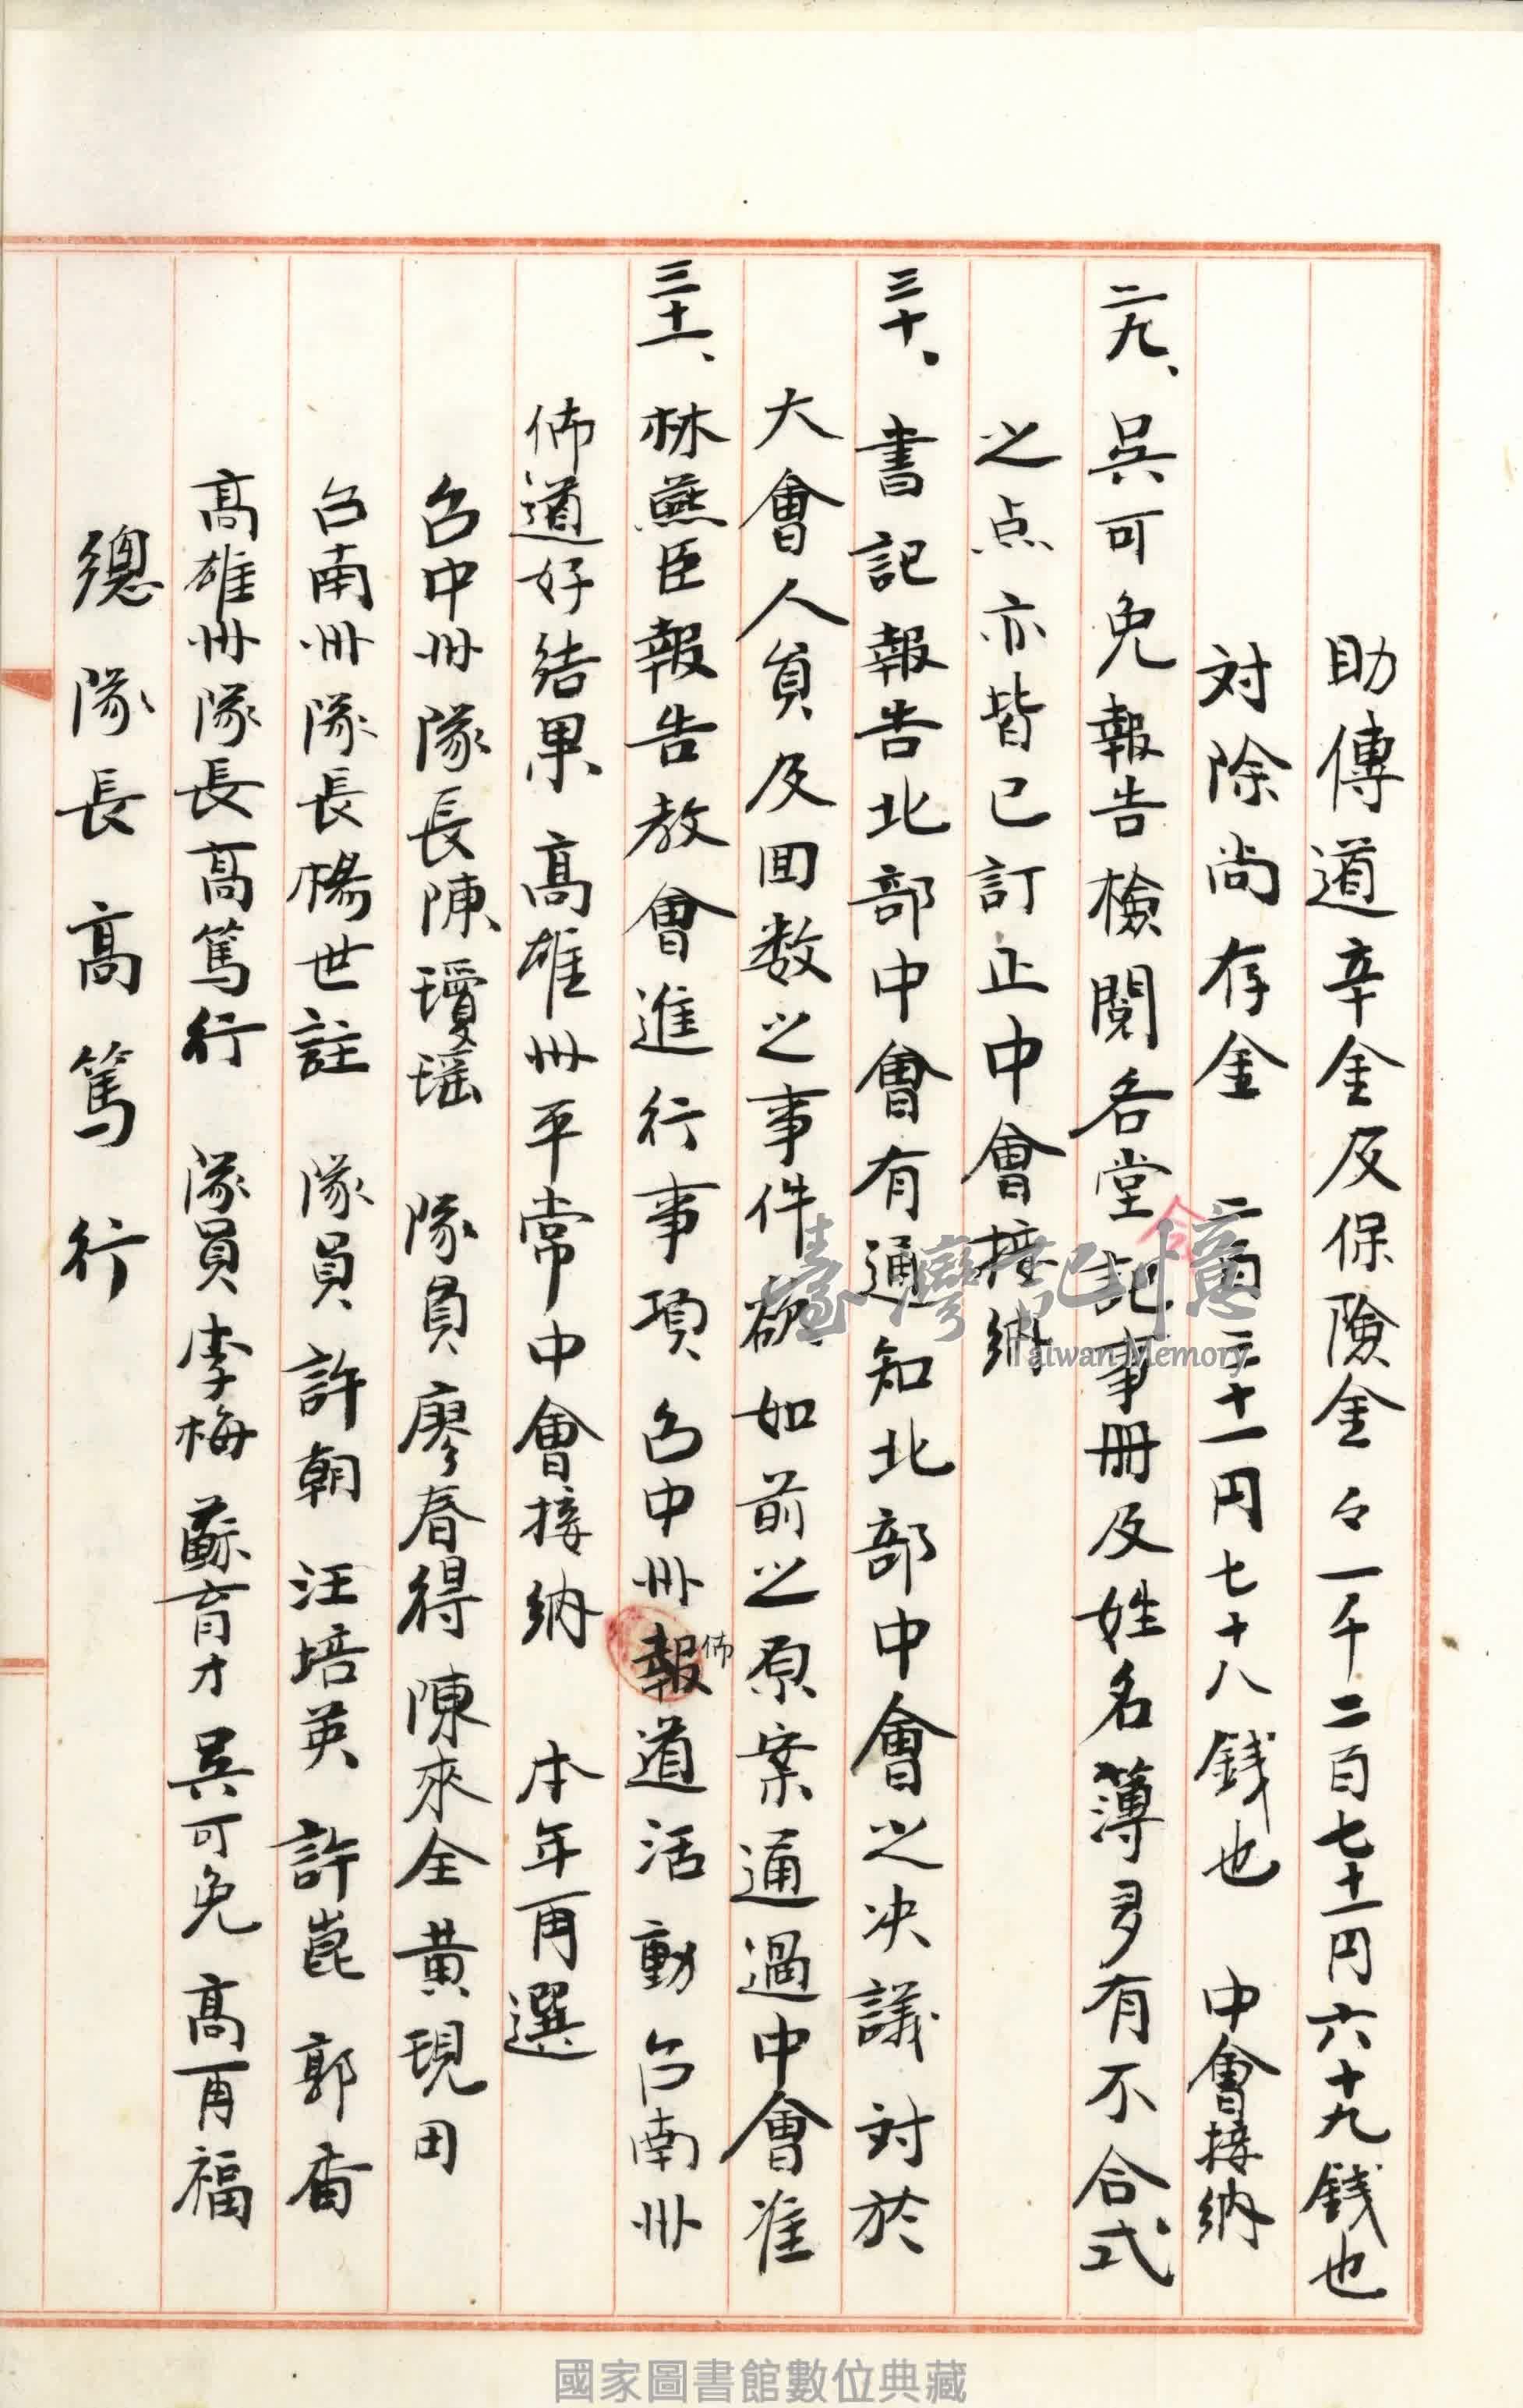 助傳道辛金及保險金々一千二百七十一円六十九錢也
対除尚存金 二百二十一円七十八錢也 中會接納
二九、吳可免報告檢閱各堂
会
記事冊及姓名薄多有不合式
之点亦皆已訂正中會接納
三十、書記報告北部中會有通知北部中會之决議対於
大會人員及囬数之事件欲如前之原案通過中會准
三十一、林燕臣報告教會進行事項台中州報道活動台南州
佈
佈道好結果 高雄州平常中會接納 本年再選
台中州隊長陳瓊瑶 隊員廖春得 陳來全 黃現田
台南州隊長楊世註 隊員許朝 汪培英 許崑 郭畓
高雄州隊長高篤行 隊員李梅 蘇育才 吳可免 高再福
總隊長高篤行
臺灣記憶
Taiwan Memory
國家圖書館數位典藏